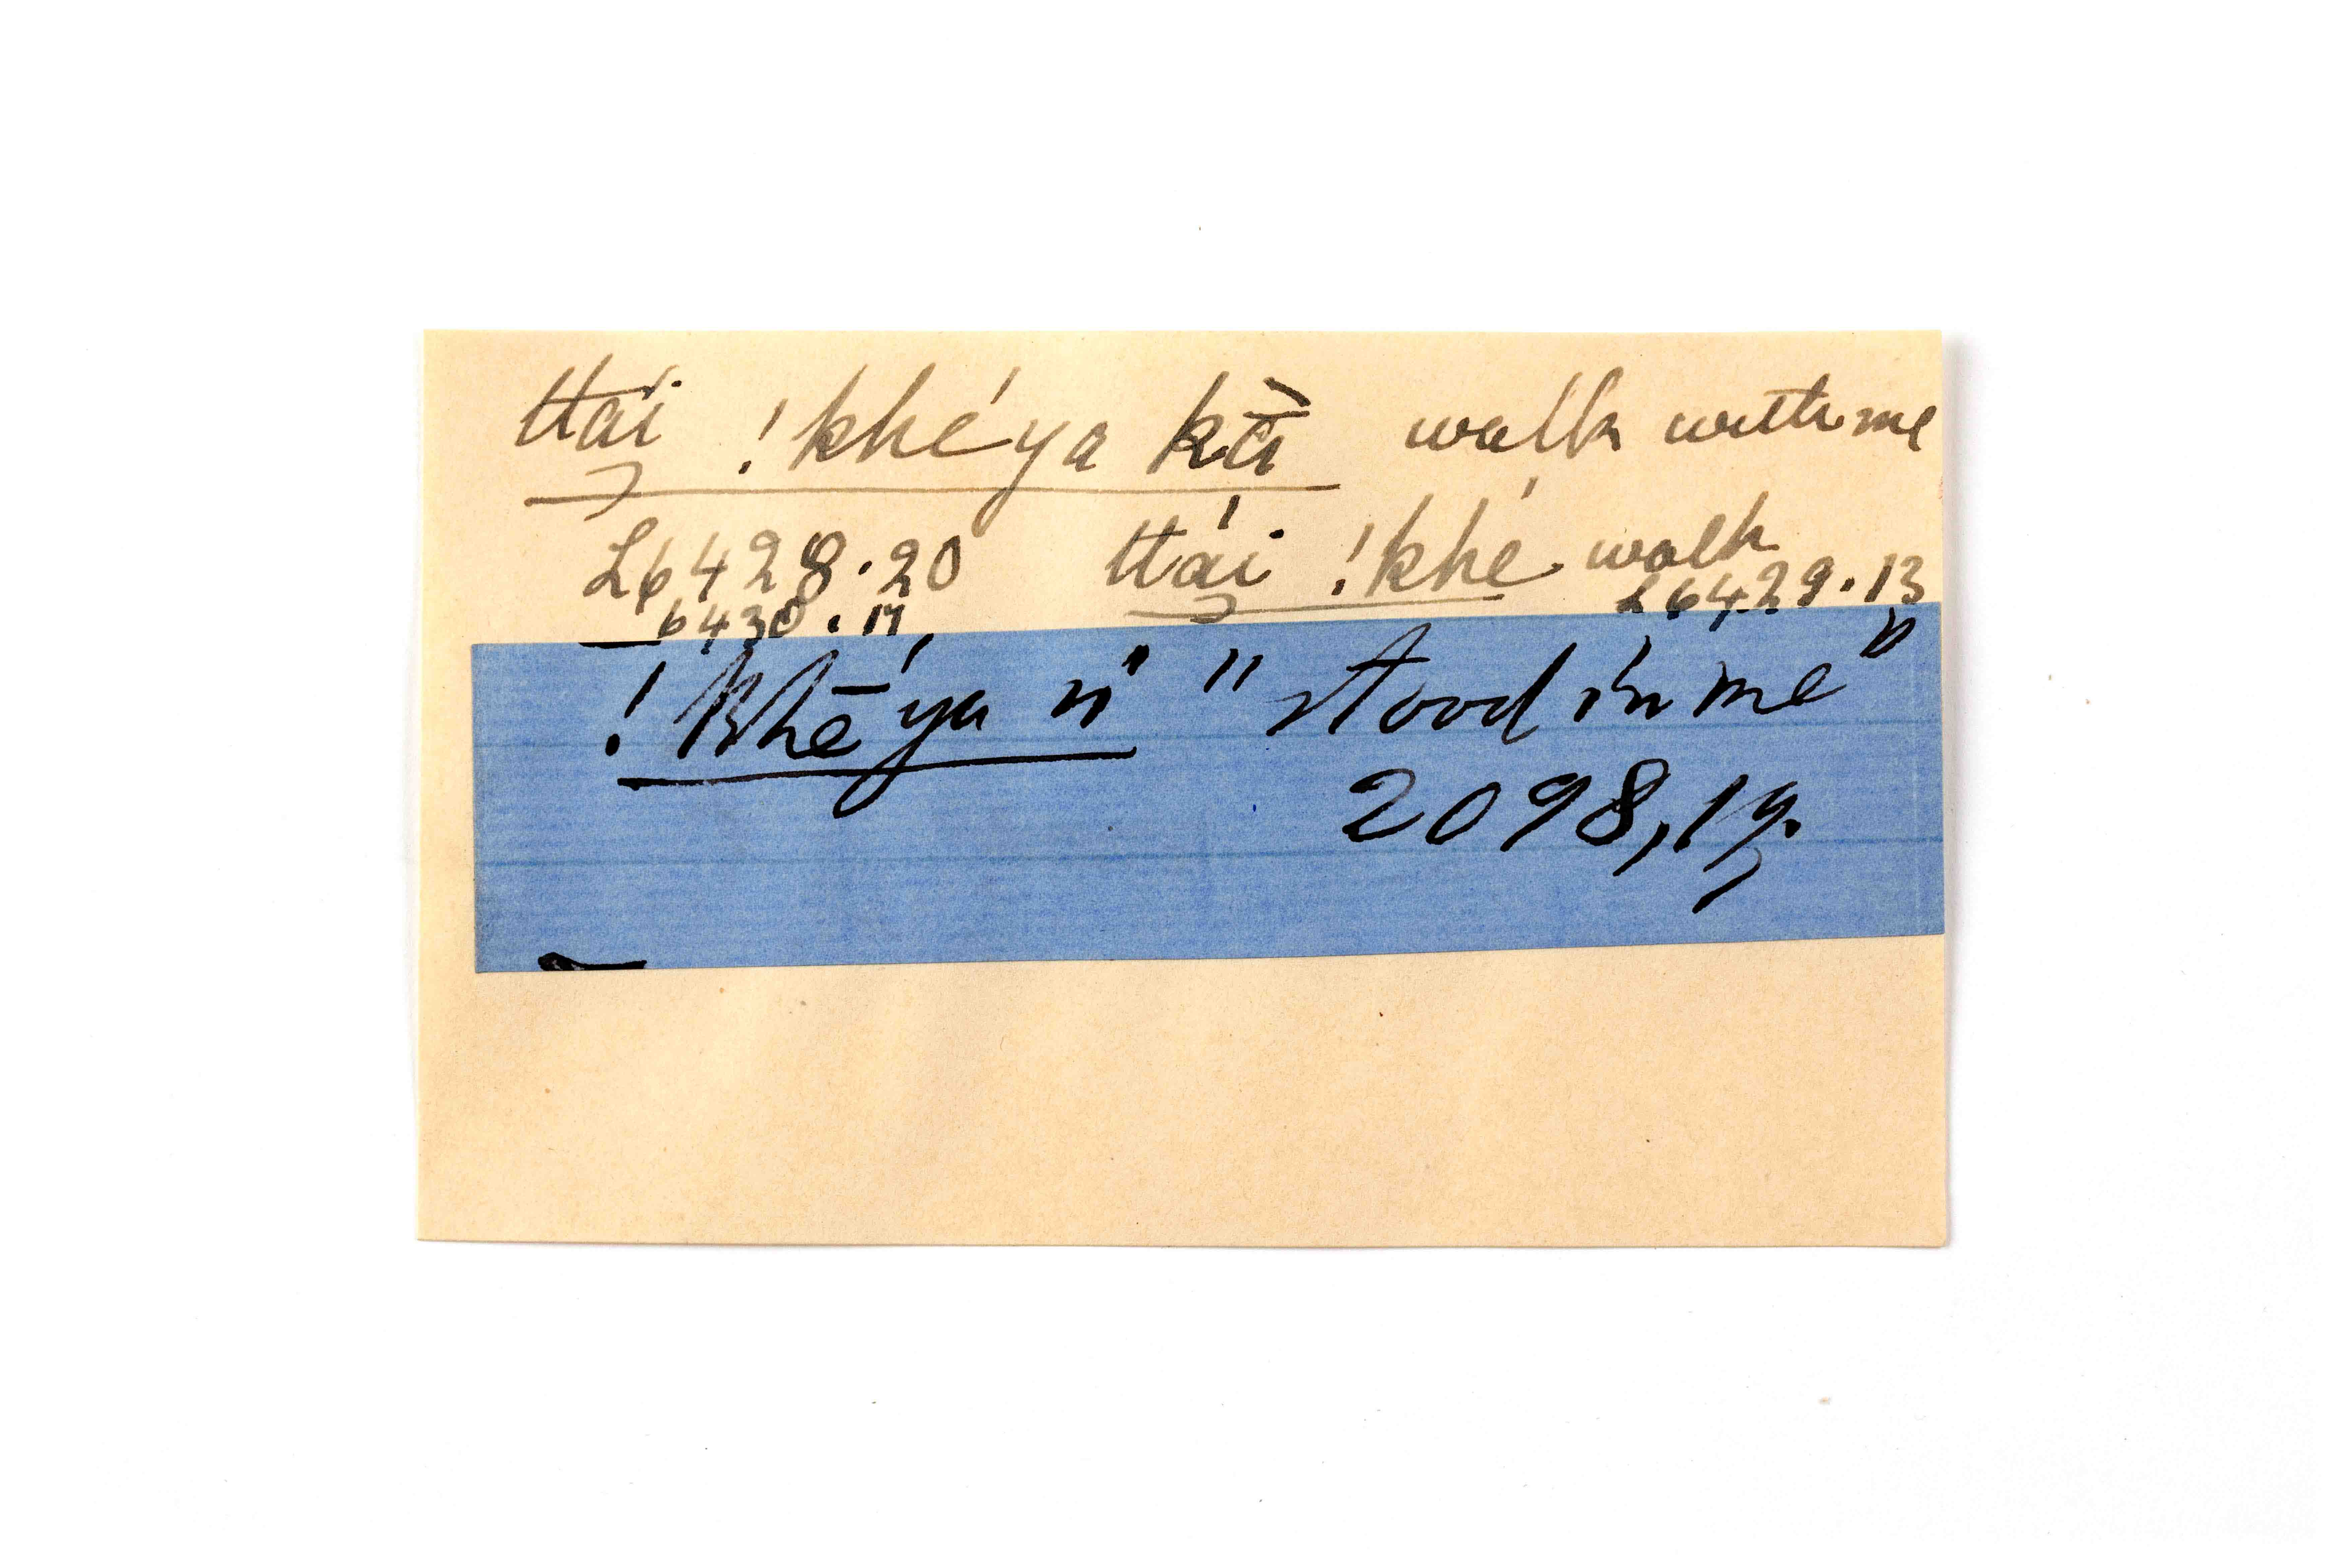 ttai !khé ya kā walk with me
L6428.20 ttái !khé walk
6430.17 L6429.13
!khē ya ń " stood in me"
2098,19.